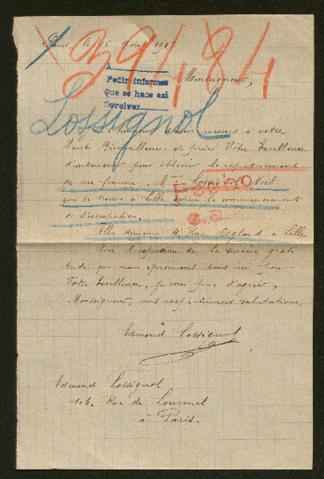 Paris le 15 Août 191
39484
Monseigneur,
Pedir informes
Que se hace así
Devolver
Lossignol
l'honneur d'avoir recours à votre
Haute Bienveillance et prier Votre Excellence
d'intervenir pour obtenir le rapatriement
de ma femme, Mme Lossignol Noit
qui se trouve à Lille depuis le commencement
de l'occupation.
Elle demeure 4 Rue à Lille
Avec l'expression de la sincère grati
tude que nous éprouvons tous ici pour
Votre Excellence, je vous prie d'agréer,
Monseigneur, mes respectueuses salutations.
Edmond Lossignol
Edmond Lossignol
106 Rue de Lourmel
à Paris.